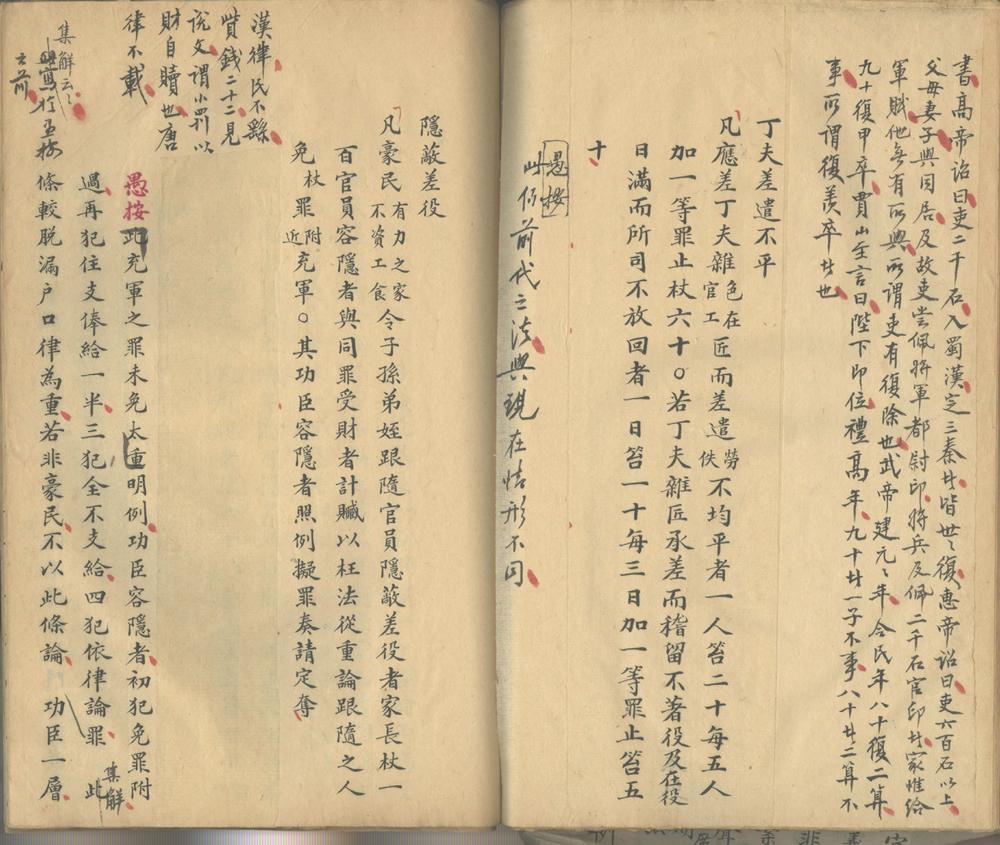 書高帝詔曰吏二千石入蜀漢定三秦者皆世〻復惠帝詔曰吏六百石以上
父母妻子與同居及故吏嘗佩將軍都尉印將兵及佩二千石官印者家惟給
軍賦他無有所與所謂吏有復除也武帝建元〻年令民年八十復二算
九十復甲卒賈山至言曰陛下即位禮高年九十者一子不事八十者二算不
事所謂復羨卒者也
丁夫差遣不平
凡應差丁夫雜色在官工匠而差遣勞佚不均平者一人笞二十每五人
加一等罪止杖六十〇若丁夫雜匠承差而稽留不著役及在役
日滿而所司不放回者一日笞一十每三日加一等罪止笞五
十
愚按
此仍前代之法與現在情形不同
隱蔽差役
凡豪民有力之家不資工食令子孫弟姪跟隨官員隱蔽差役者家長杖一
百官員容隱者與同罪受財者計贓以枉法從重論跟隨之人
免杖罪附近充軍〇其功臣容隱者照例擬罪奏請定奪
漢律民不繇
貲錢二十二見
說文謂小罰以
財自贖也唐
律不載
愚按此充軍之罪未免太重明例功臣容隱者初犯免罪附
過再犯住支俸給一半三犯全不支給四犯依律論罪 此
集解
條較脫漏戶口律為重若非豪民不以此條論 功臣一層
集解云〻
寫於愚按
之前